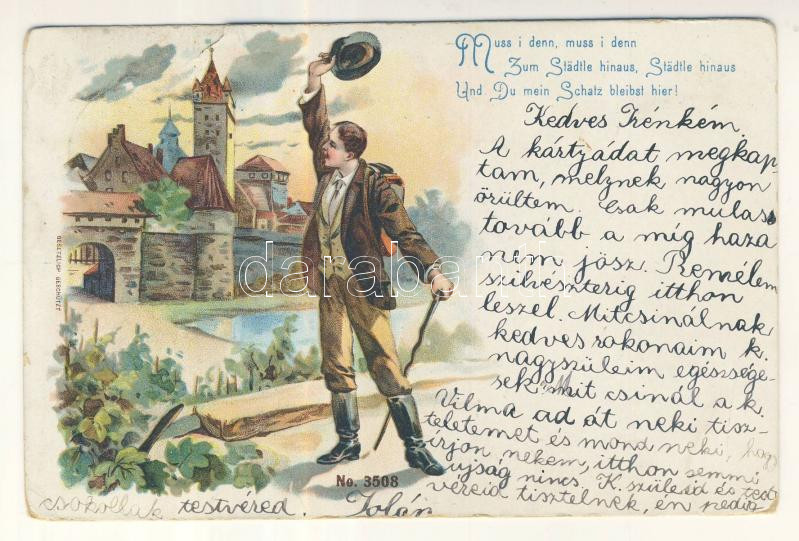 Muss i denn, muss i denn
Zum Städtle hinaus, Städtle hinaus
Und Du mein Schatz bleibst hier!
Kedves Irénkém.
A kártyádat megkap-
tam, melynek nagyon
örültem. Csak mulass
tovább a míg haza
nem jösz. Remélem
szilveszterig itthon
leszel. Mitcsinálnak
kedves rokonaim k.
nagyszüleim egészsége-
sek? Mit csinál a k.
Vilma ad át neki tisz-
teletemet és mond neki, hogy
irjon nekem, itthon semmi
ujság nincs. K. szüleid és test
véreid tisztelnek, én pedig
csokollak testvéred. Jolán
No. 3508
GESETZLICH GESCHÜTZT
darabanth